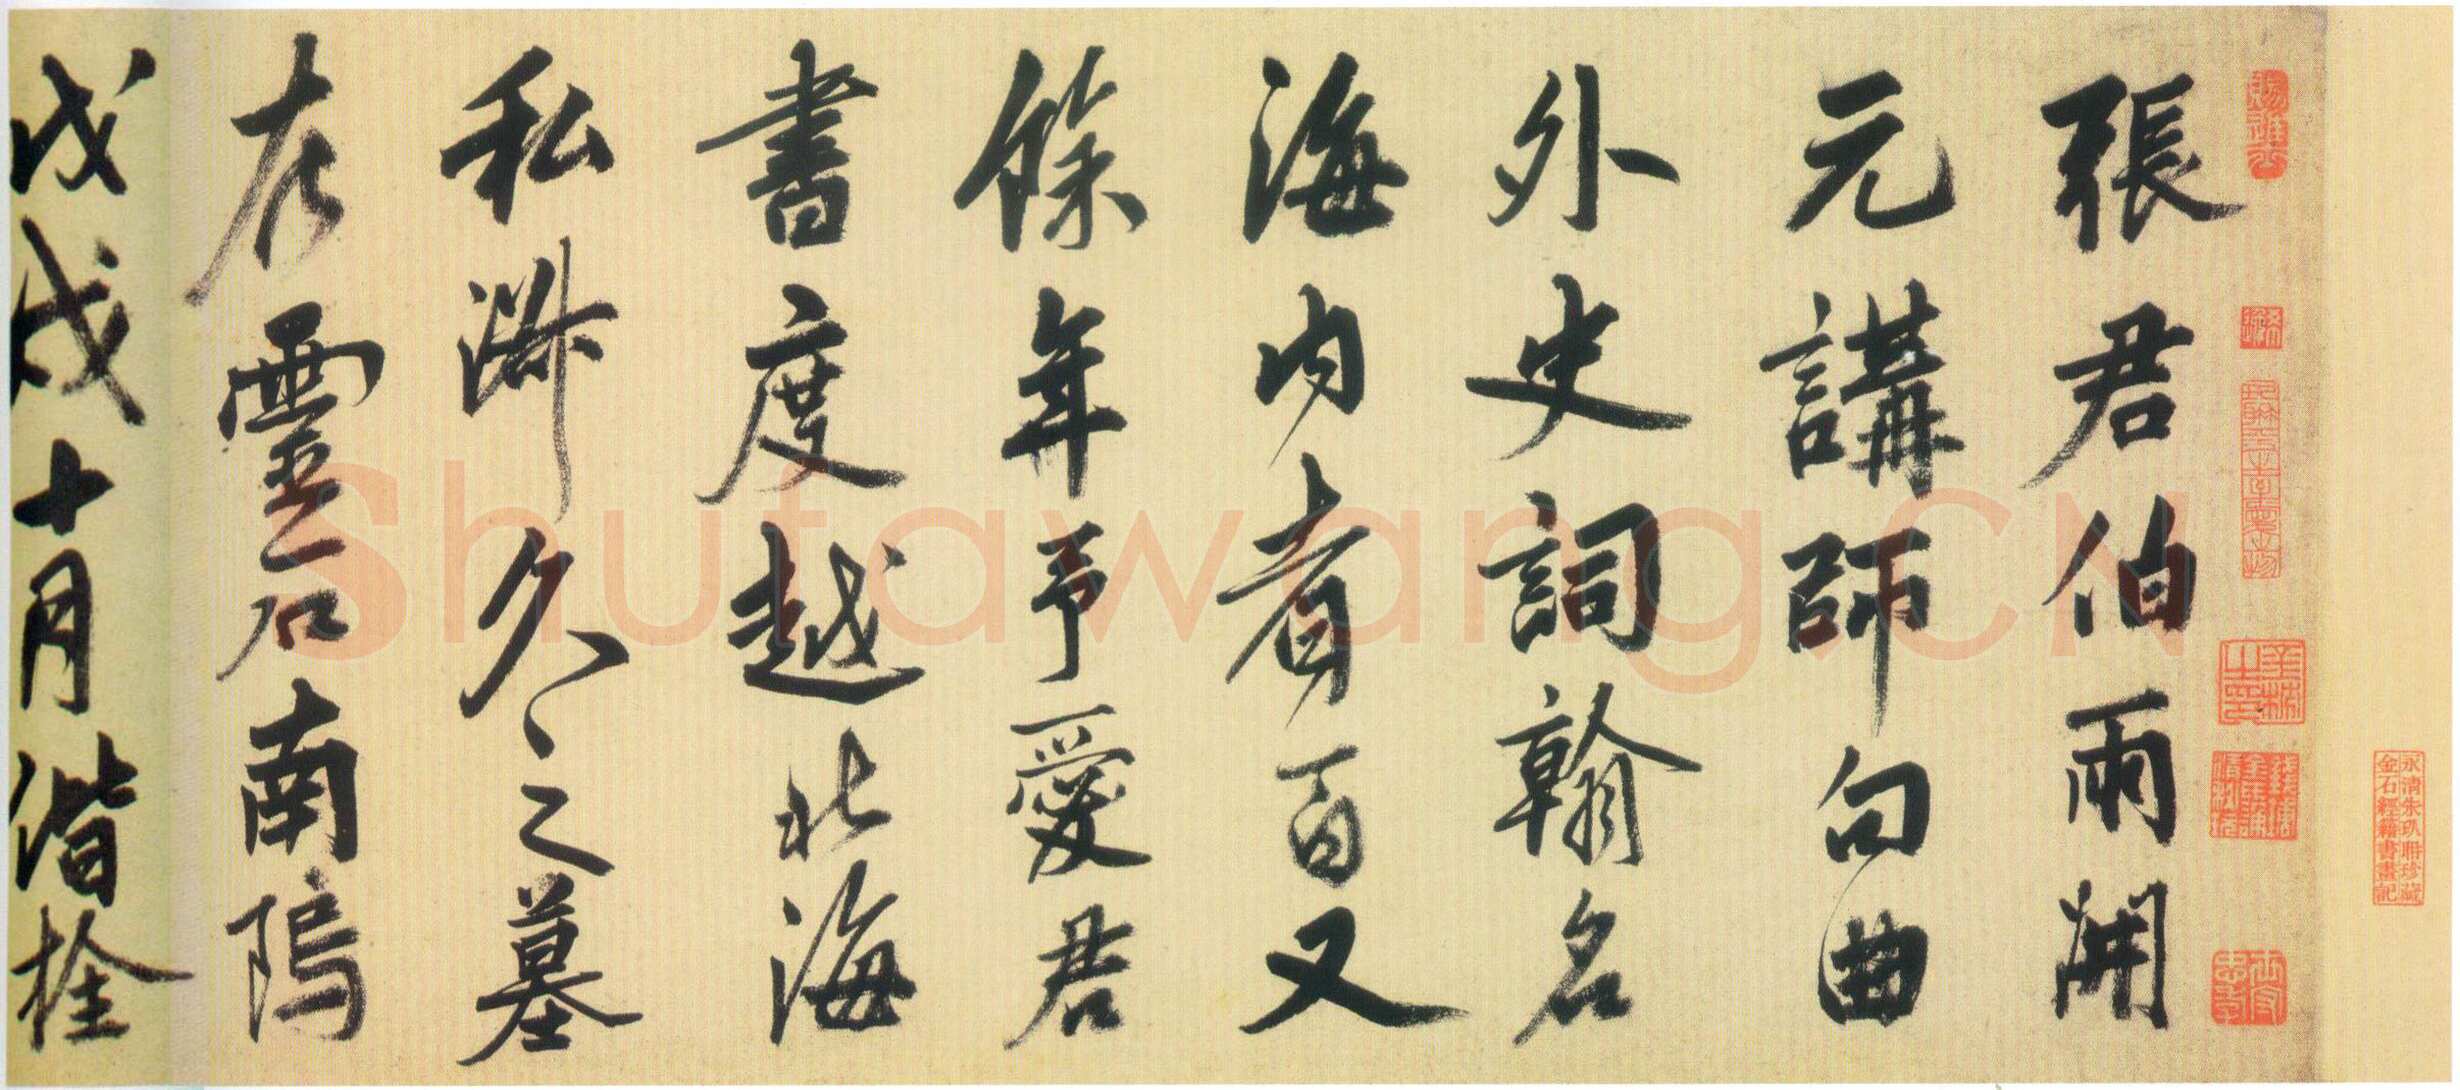 張君伯雨開
元講師句曲
外史詞翰名
海內者百又
餘年予愛君
書度越北海
私淑久之墓
在靈石南塢
戊戌十月偕栓
永清朱玖聃珍藏
金石經籍書畫記
Shufawang.CN